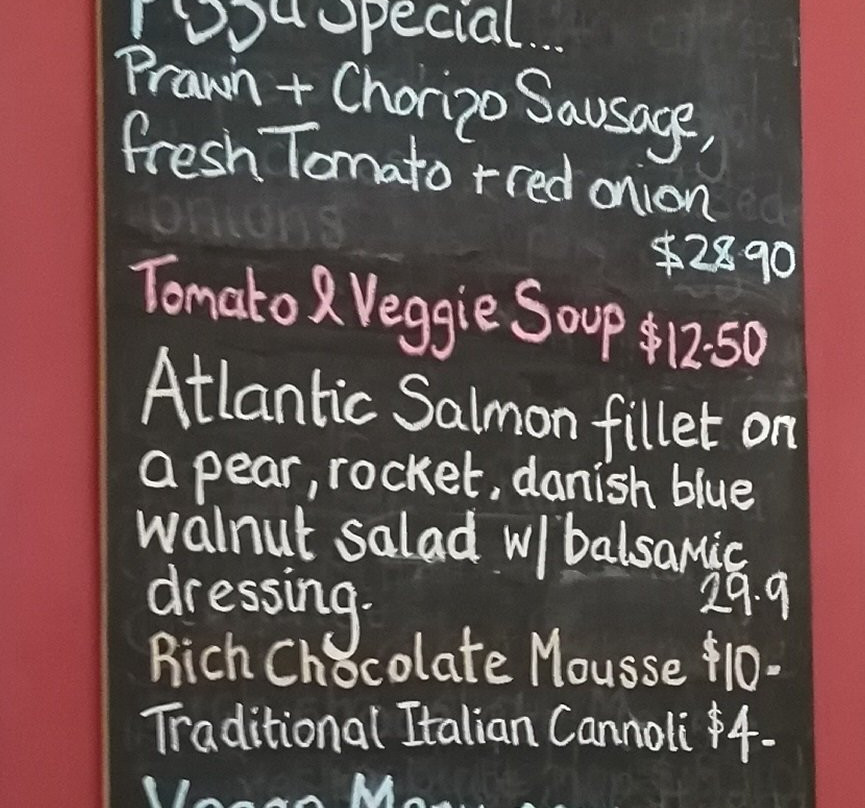 Pizza Special...
Prawn + Chorizo Sausage,
fresh Tomato + red onion
$28.90
Tomato & Veggie Soup $12-50
Atlantic Salmon fillet on
a pear, rocket, danish blue
walnut salad w/ balsamic
dressing. 29.9
Rich Chocolate Mousse $10-
Traditional Italian Cannoli $4-
Vegan Menu